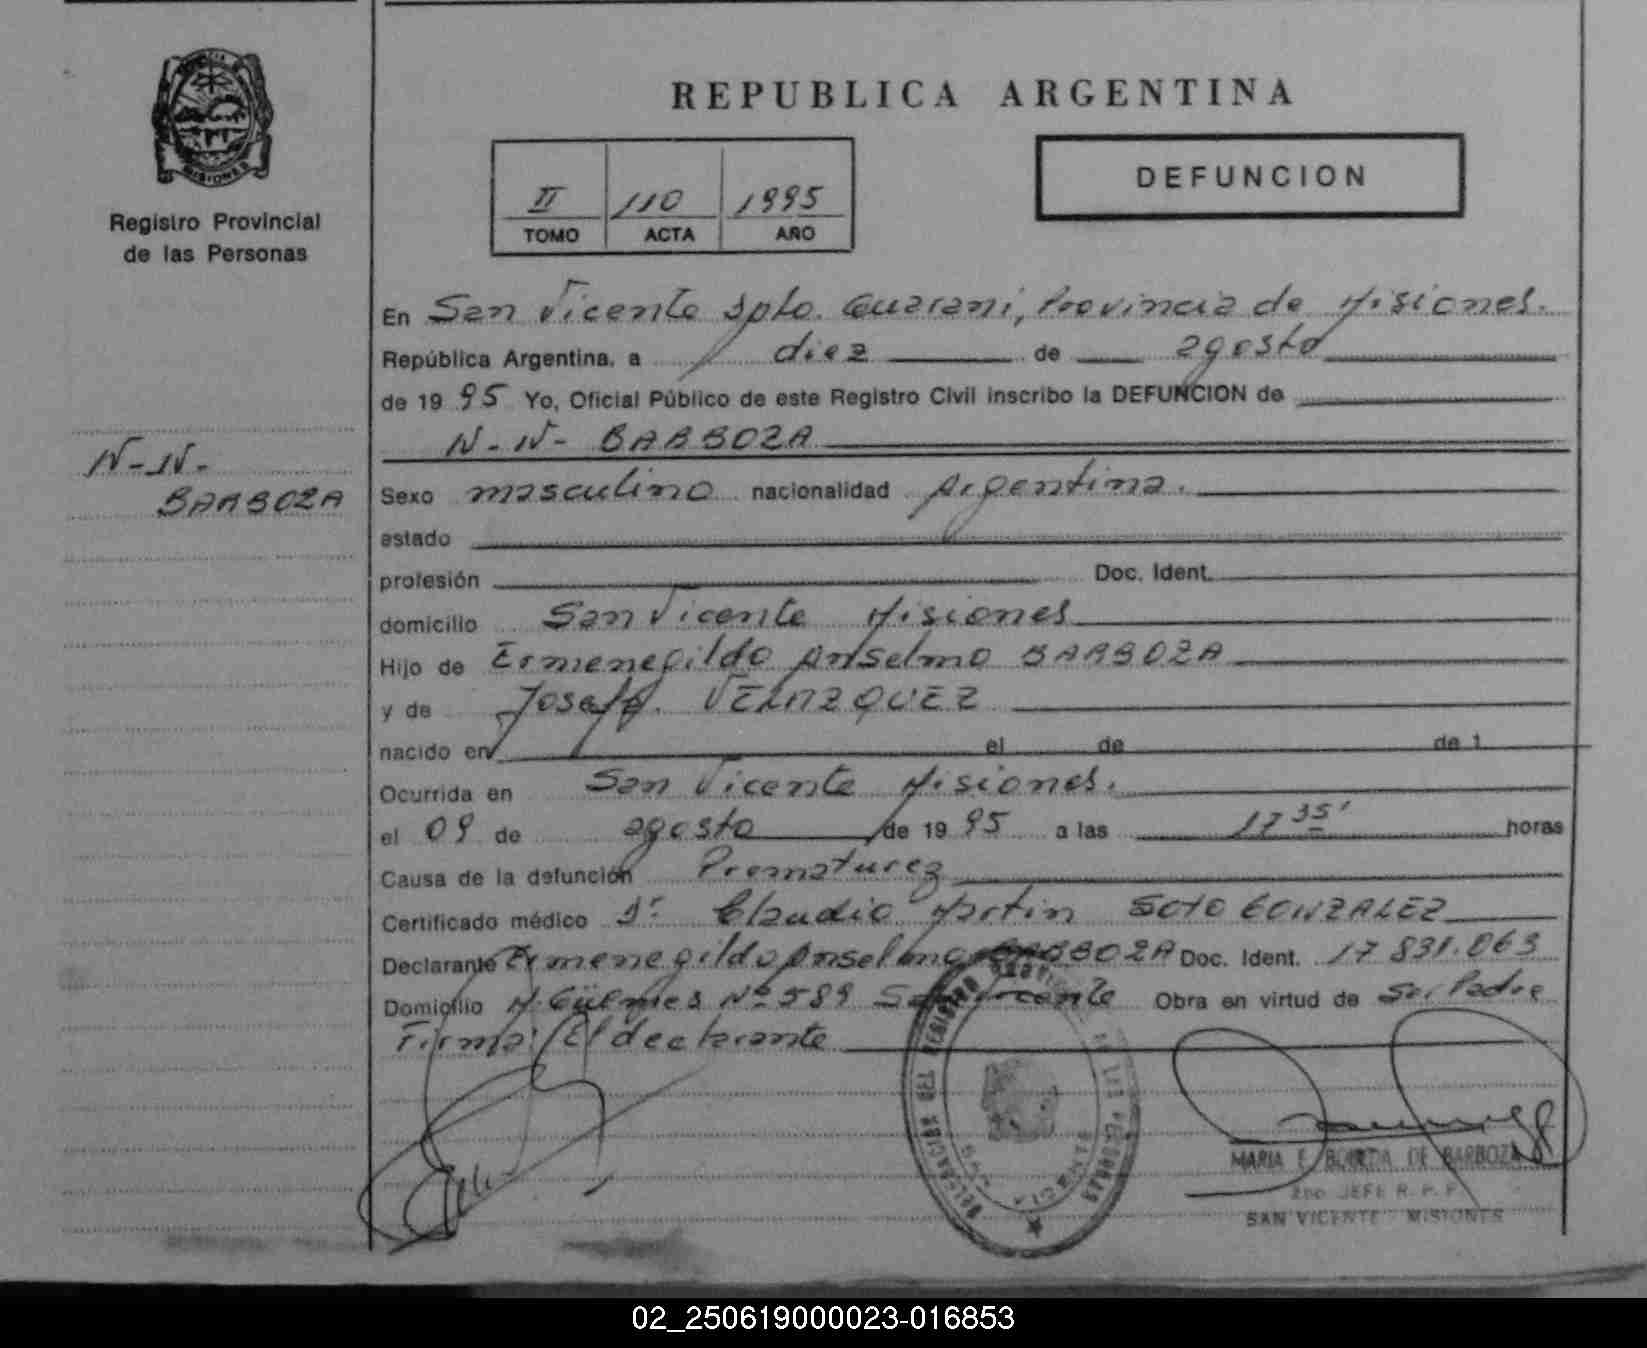 REPUBLICA ARGENTINA
DEFUNCION
II 110 1995
TOMO ACTA AÑO
MISIONES
Registro Provincial
de las Personas
N-N-
BARBOZA
En San Vicente Dpto. Guarani, Provincia de Misiones.
República Argentina, a diez de agosto
de 19 95 Yo, Oficial Público de este Registro Civil inscribo la DEFUNCION de
N-N- BARBOZA
Sexo masculino nacionalidad Argentina.
estado
profesión Doc. Ident.
domicilio San Vicente Misiones
Hijo de Ermenegildo Anselmo BARBOZA
y de Josefa. VELAZQUEZ
nacido en el de de 1
Ocurrida en San Vicente Misiones.
el 09 de agosto de 19 95 a las 17 35' horas
Causa de la defunción Prematurez
Certificado médico Dr. Claudio Martin SOTO GONZALEZ
Declarante Ermenegildo Anselmo BARBOZA Doc. Ident. 17 831.063
Domicilio M. Güemes Nº 589 San Vicente Obra en virtud de Ser Padre
Firma: El declarante
DELEGACION DEL REGISTRO DE LAS PERSONAS
SAN VICENTE
MARIA E. DE BARBOZA
2do JEFE R. P. P.
SAN VICENTE - MISIONES
02_250619000023-016853